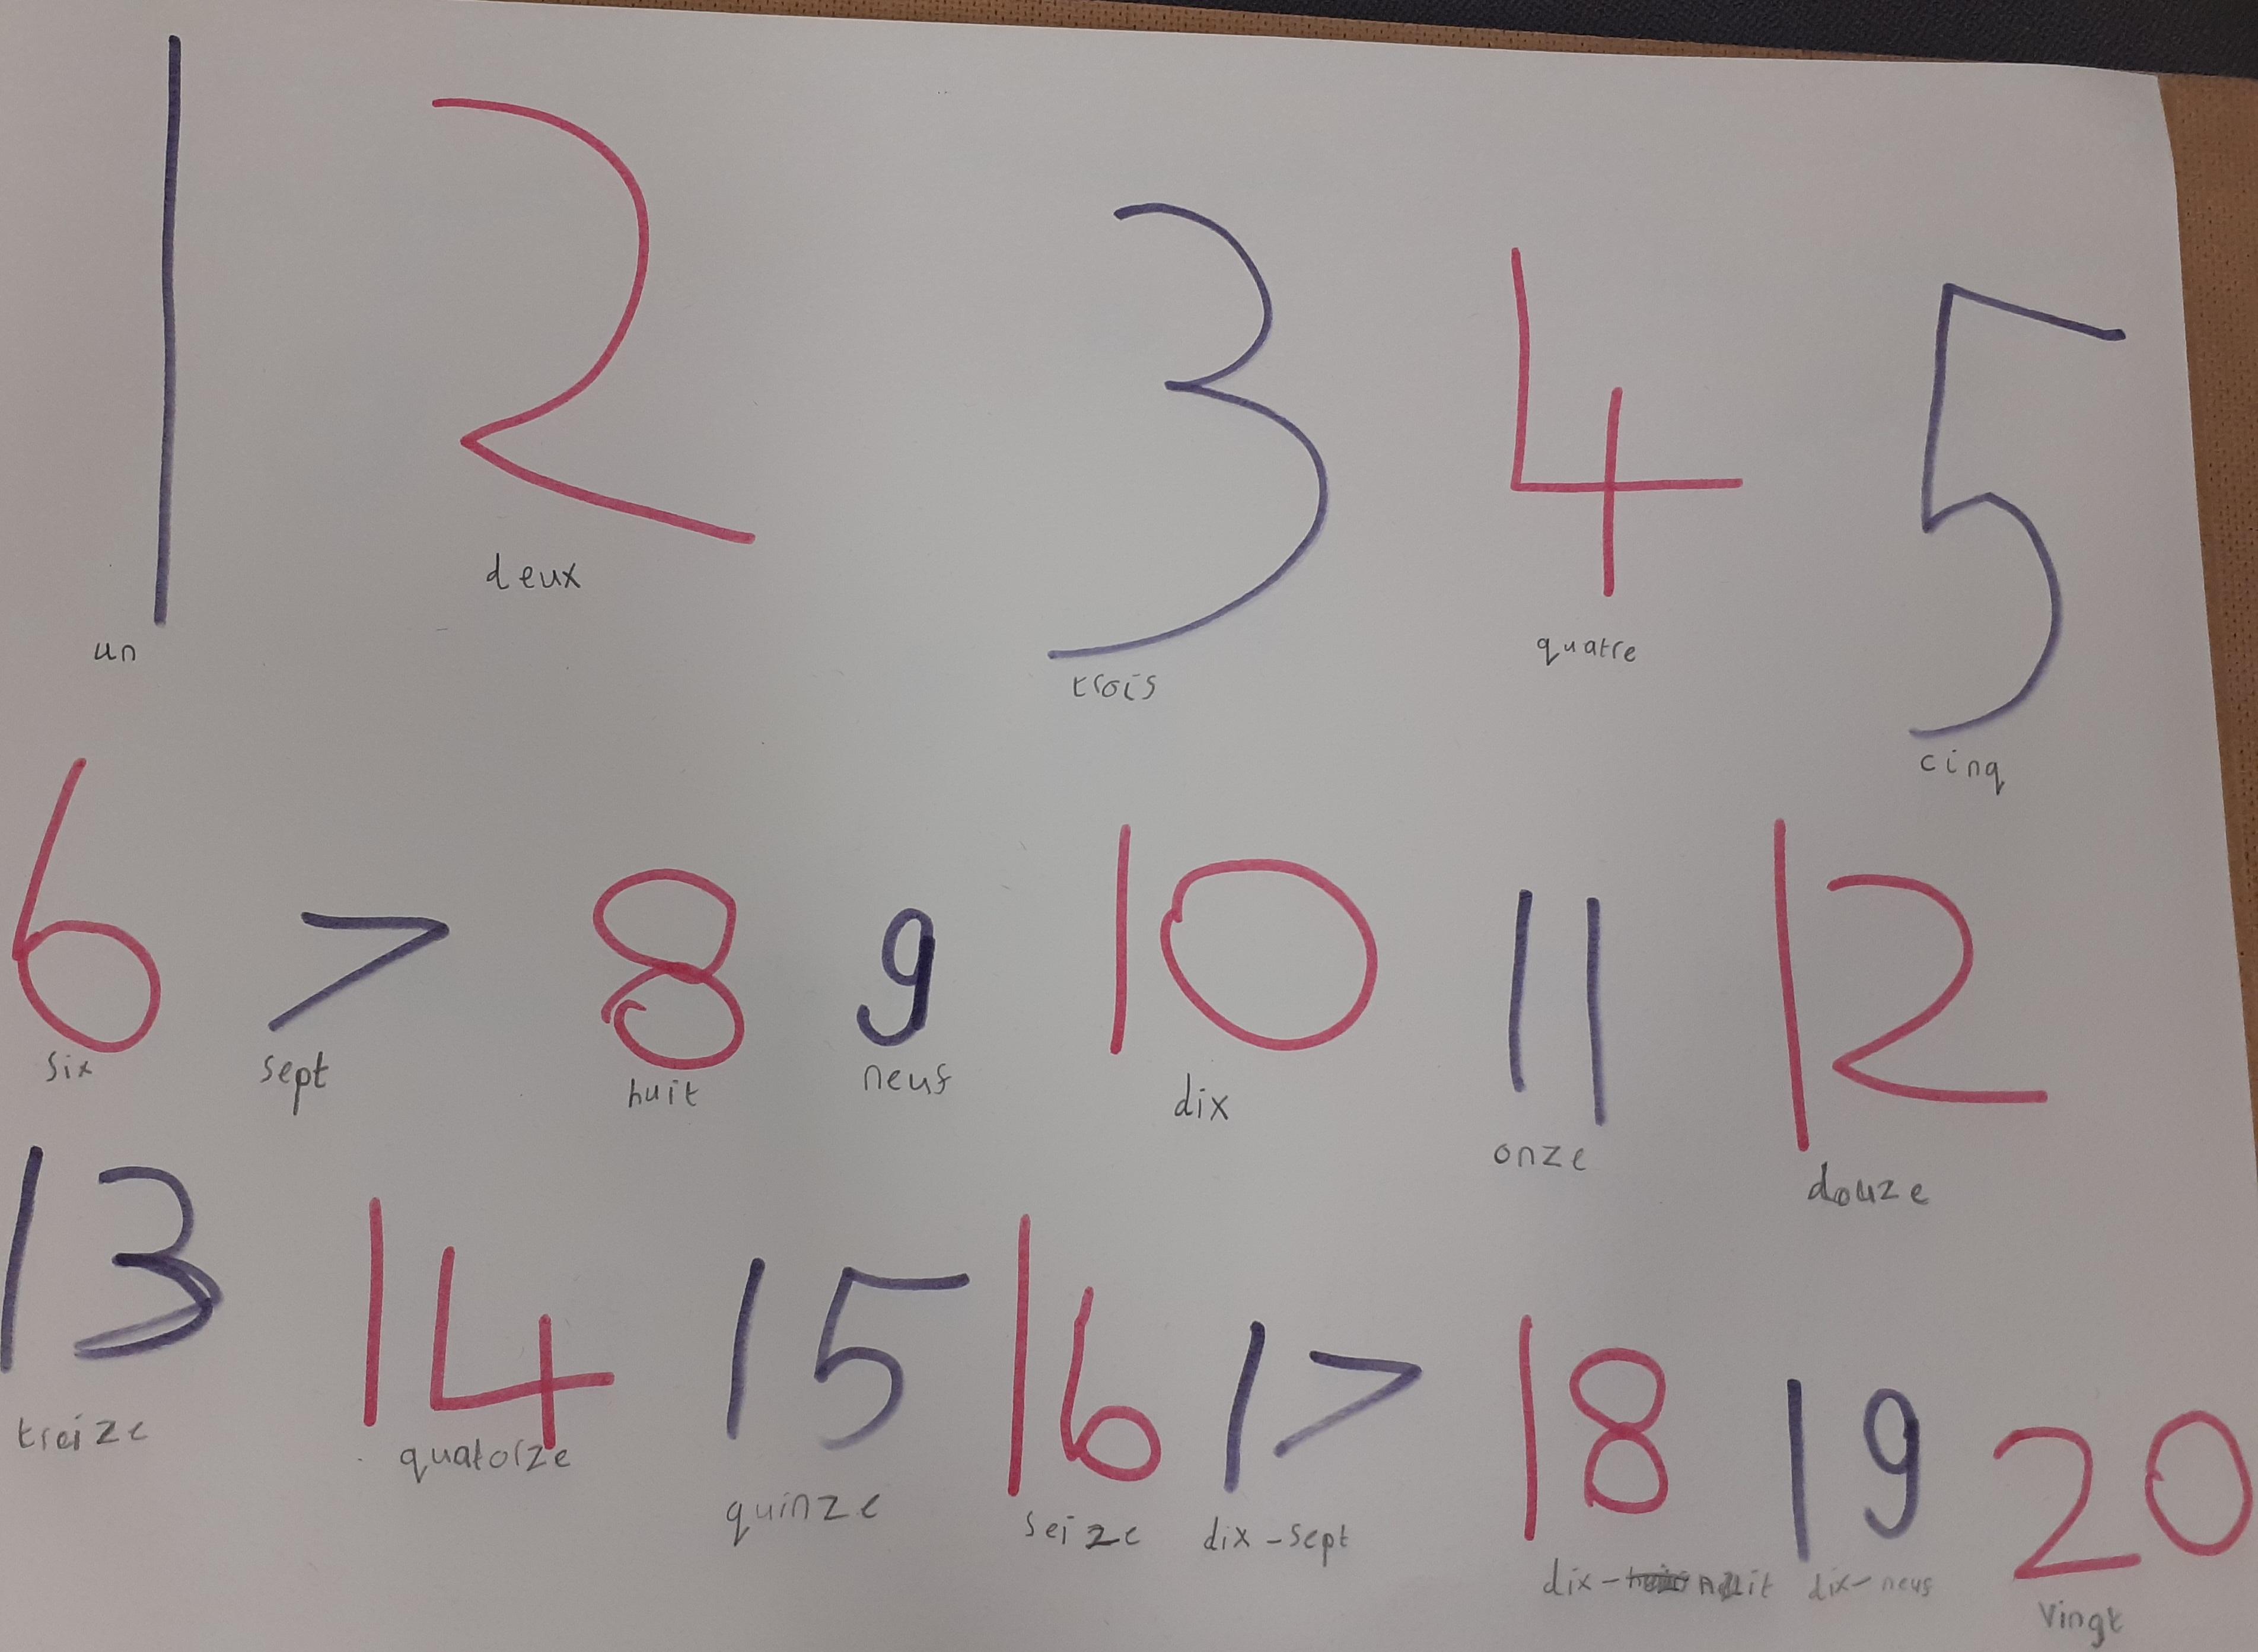 1 2 3 4 5
un deux trois quatre cinq
6 7 8 9 10 11 12
six sept huit neuf dix onze douze
13 14 15 16 17 18 19 20
treize quatorze quinze seize dix-sept dix-huit dix-neuf vingt